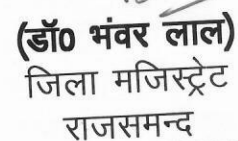 (डॉ0 भंवर लाल)
जिला मजिस्ट्रेट
राजसमन्द